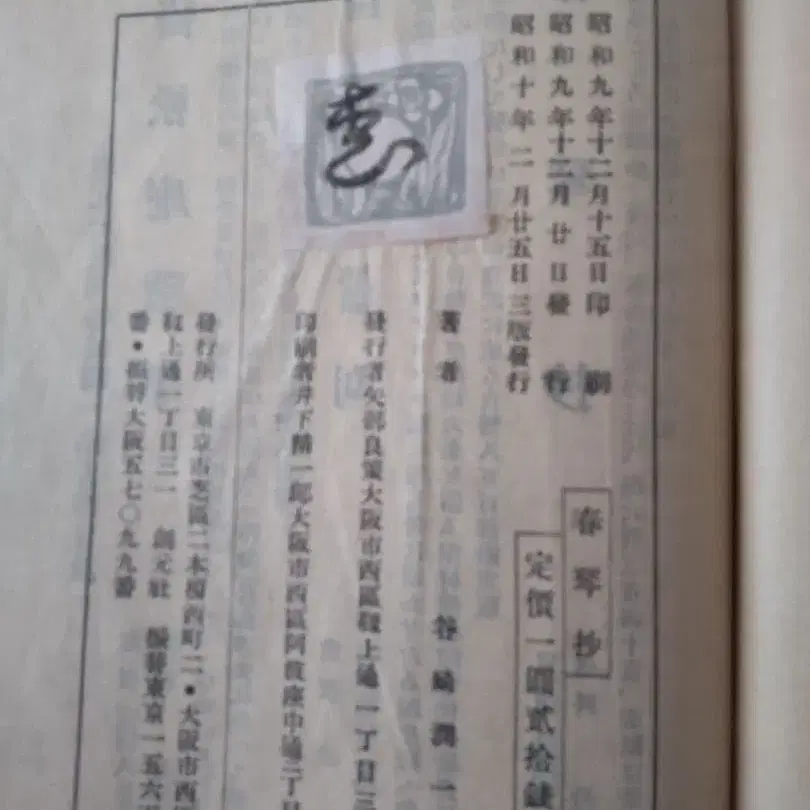 昭和九年十二月十五日印刷
昭和九年十二月廿日發行
昭和十年二月廿五日三版發行
春琴抄
定價一圓貳拾錢
著者 谷崎潤一
發行者 矢部良策 大阪市西區靱上通一丁目三
印刷者 井下精一郎 大阪市西區阿波座中通二丁目
發行所 東京市芝區二本榎西町二・大阪市西
靱上通一丁目三一 創元社 振替東京一五六
番・振替大阪五七〇九九番